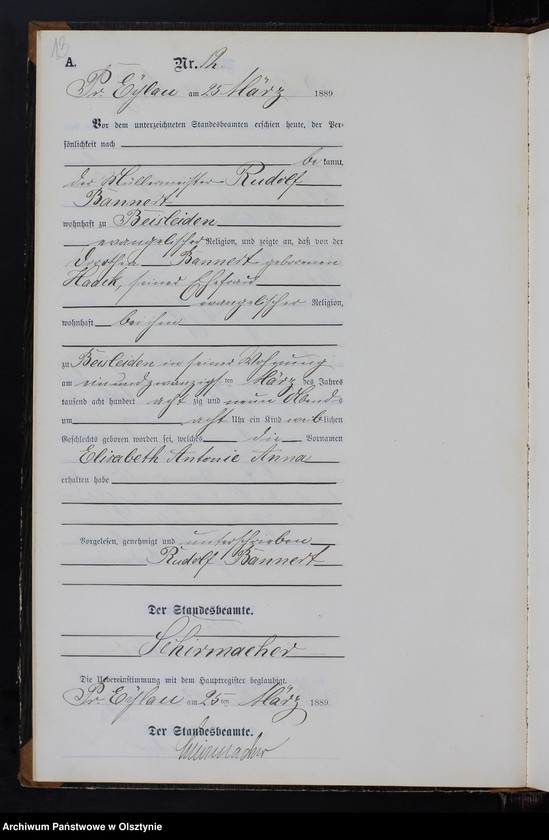 13
A.
Nr.
Pr. Eylau am 25 März 1889.
Vor dem unterzeichneten Standesbeamten erschien heute, der Per-
sönlichkeit nach
be kannt,
der Müllermeister Rudolf
Bannert
wohnhaft zu Beisleiden
evangelischer Religion, und zeigte an, daß von der
Dorothea Bannert geborenen
Hadek, seiner Ehefrau
evangelischer Religion,
wohnhaft bei ihm
zu Beisleiden in seiner Wohnung
am einundzwanzigsten März des Jahres
tausend acht hundert acht zig und neun Abends
um acht Uhr ein Kind weiblichen
Geschlechts geboren worden sei, welches die Vornamen
Elisabeth Antonie Anna
erhalten habe
Vorgelesen, genehmigt und unterschrieben
Rudolf Bannert
Der Standesbeamte.
Schirmacher
Die Uebereinstimmung mit dem Hauptregister beglaubigt.
Pr. Eylau am 25 ten März 1889.
Der Standesbeamte.
Schirmacher
Archiwum Państwowe w Olsztynie